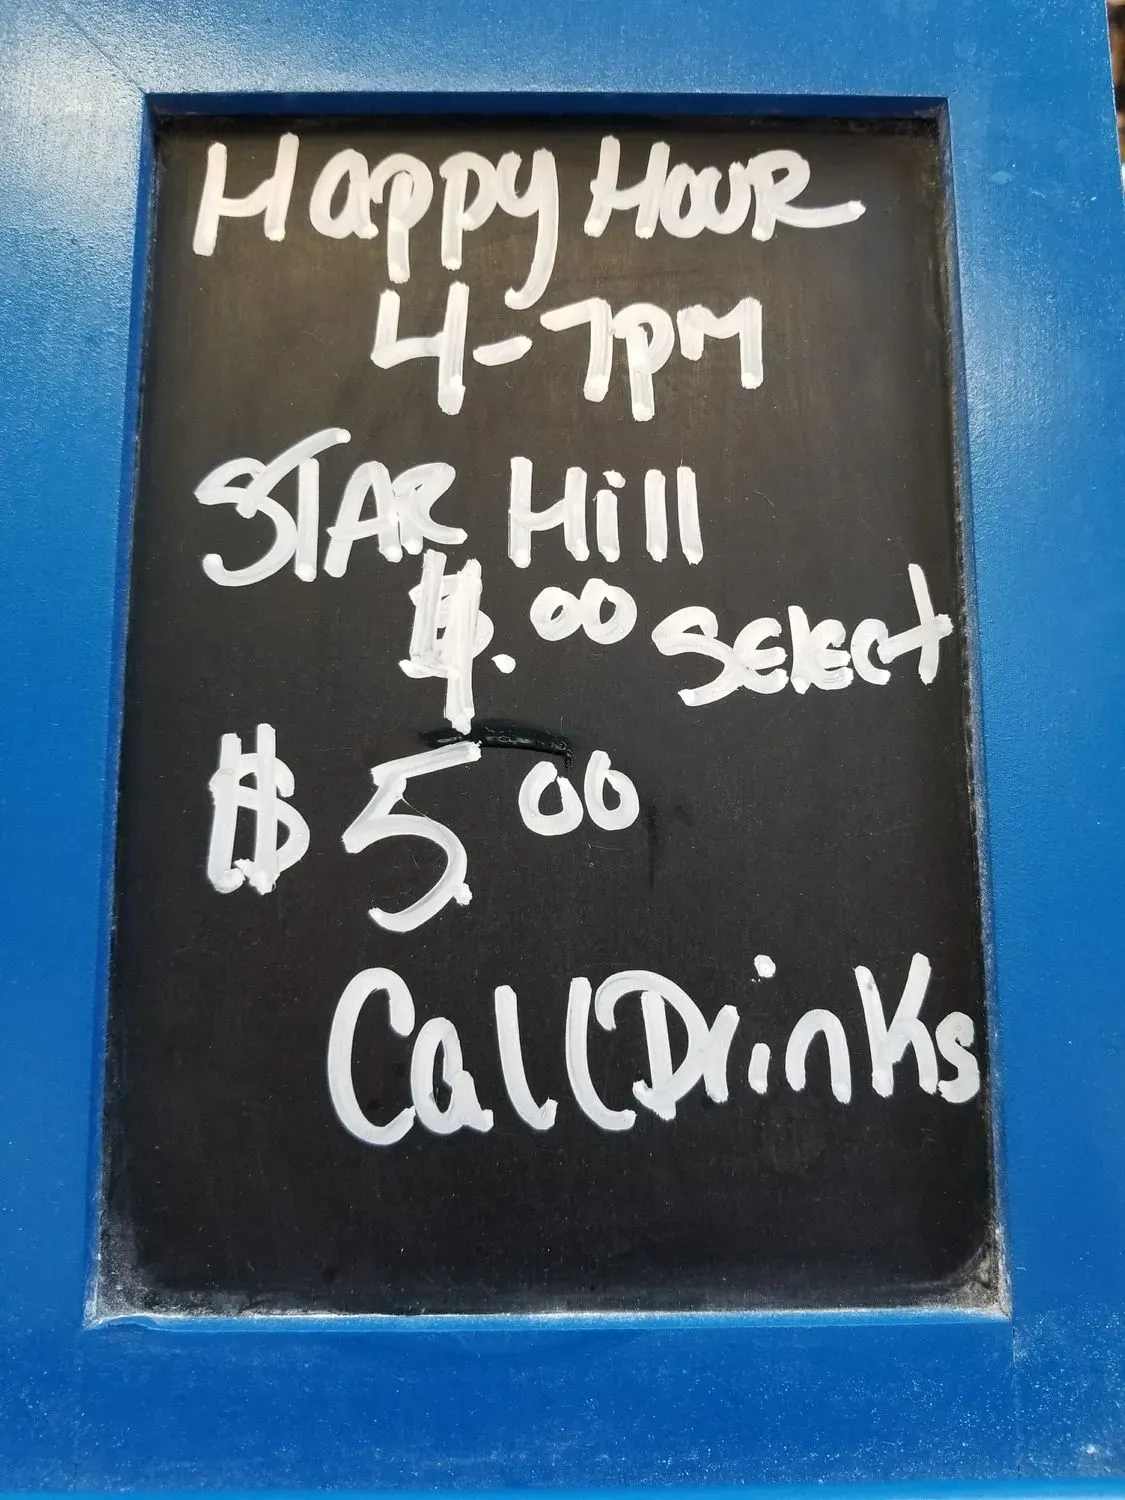 Happy Hour
4-7pm
STAR Hill
$4.00 Select
$5 00
Call Drinks